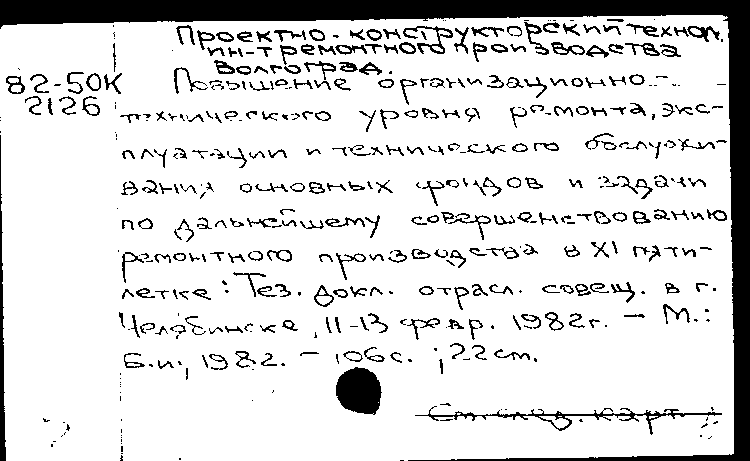 Проектно-конструкторский технол.
ин-т ремонтного производства
Волгоград.
82-50К
2126
Повышение организационно-
технического уровня ремонта, экс-
плуатации и технического обслужи-
вания основных фондов и задачи
по дальнейшему совершенствованию
ремонтного производства в XI пяти-
летке: Тез. докл. отрасл. совещ. в г.
Челябинске, 11-13 февр. 1982г. - М.:
Б.и., 1982. - 106с. ; 22 см.
См. след. карт.